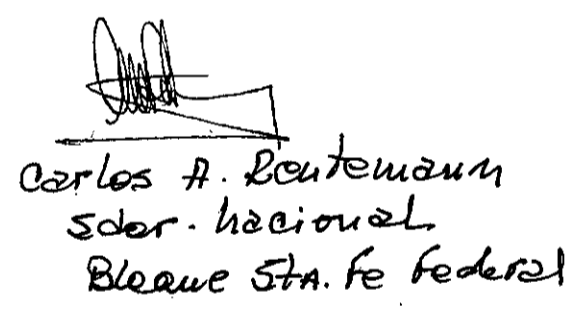 Carlos A. Reutemann
Sdor. Nacional
Bloque Sta. Fe Federal